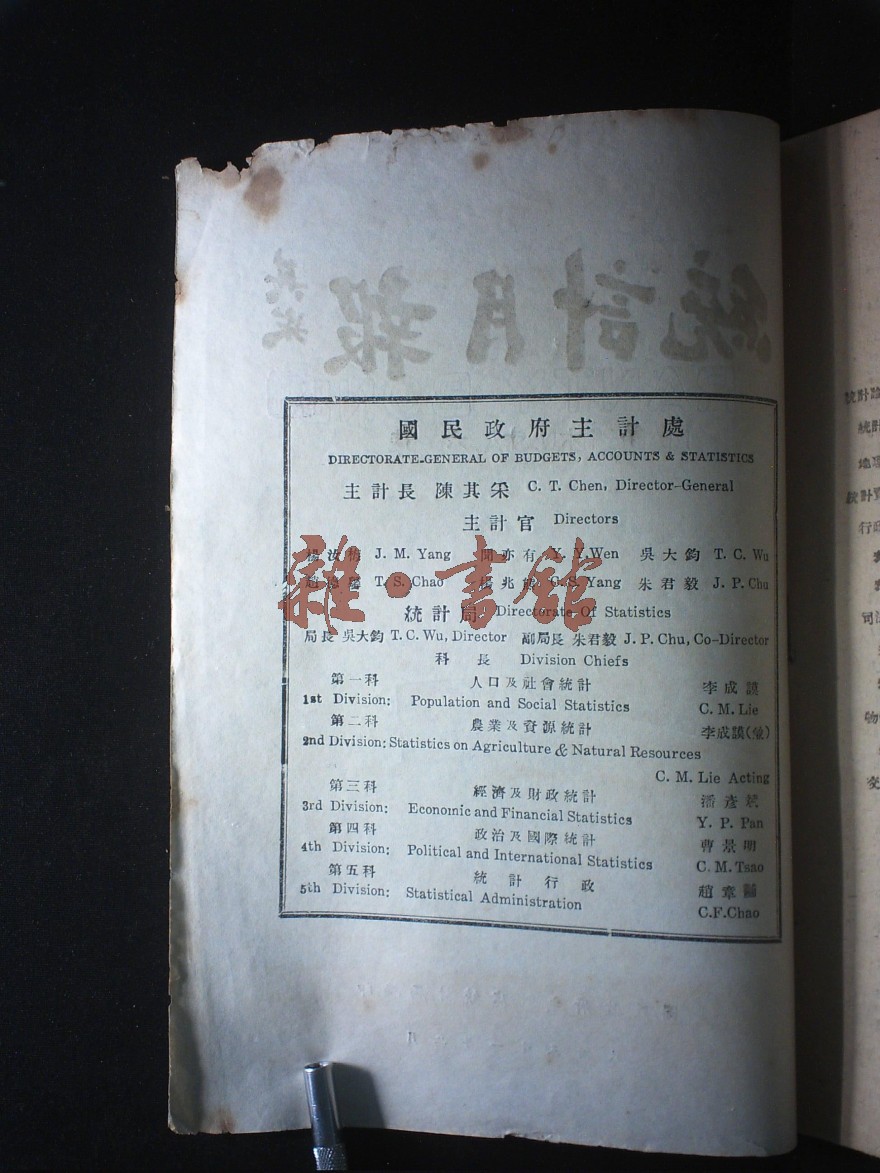 統計月報
國民政府主計處
DIRECTORATE-GENERAL OF BUDGETS, ACCOUNTS & STATISTICS
主計長 陳其采 C. T. Chen, Director-General
主計官 Directors
楊汝梅 J. M. Yang 聞亦有 Y. Y. Wen 吳大鈞 T. C. Wu
T. S. Chao 楊兆熊 C. S. Yang 朱君毅 J. P. Chu
雜·書館
統計局 Directorate Of Statistics
局長 吳大鈞 T. C. Wu, Director 副局長 朱君毅 J. P. Chu, Co-Director
科長 Division Chiefs
第一科 人口及社會統計 李成謨
1st Division: Population and Social Statistics C. M. Lie
第二科 農業及資源統計 李成謨(兼)
2nd Division: Statistics on Agriculture & Natural Resources
C. M. Lie Acting
第三科 經濟及財政統計 潘彥斌
3rd Division: Economic and Financial Statistics Y. P. Pan
第四科 政治及國際統計 曹景明
4th Division: Political and International Statistics C. M. Tsao
第五科 統計行政 趙章黼
5th Division: Statistical Administration
C.F.Chao